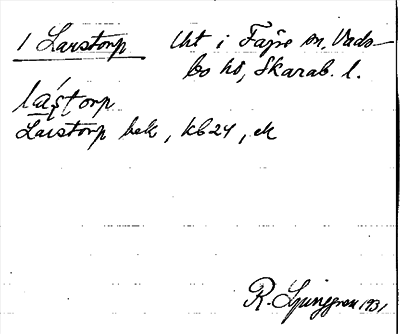 1 Larstorp Uht i Fägre sn, Vads-
bo hd, Skarab. l.
lástorp
Larstorp bek, kb 24, ek
R. Ljunggren 1931